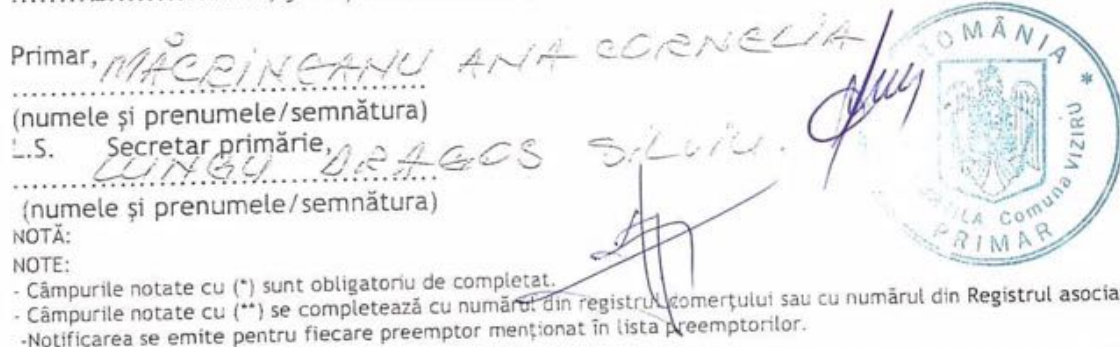 Primar, MĂCRINEANU ANA CORNELIA
(numele și prenumele/semnătura)
L.S. Secretar primărie,
LUNGU DRAGOS SILVIU.
(numele și prenumele/semnătura)
NOTĂ:
NOTE:
- Câmpurile notate cu (*) sunt obligatoriu de completat.
- Câmpurile notate cu (**) se completează cu numărul din registrul comerțului sau cu numărul din Registrul asocia
-Notificarea se emite pentru fiecare preemptor menționat în lista preemptorilor.
ROMÂNIA *
Comuna VIZIRU
PRIMAR